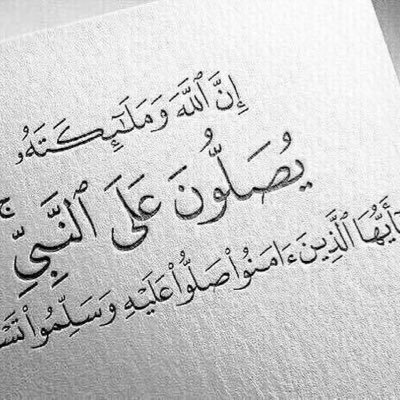 إِنَّ ٱللَّهَ وَمَلَٰٓئِكَتَهُۥ
يُصَلُّونَ عَلَى ٱلنَّبِيِّ ۚ
يَٰٓأَيُّهَا ٱلَّذِينَ ءَامَنُوا۟ صَلُّوا۟ عَلَيْهِ وَسَلِّمُوا۟